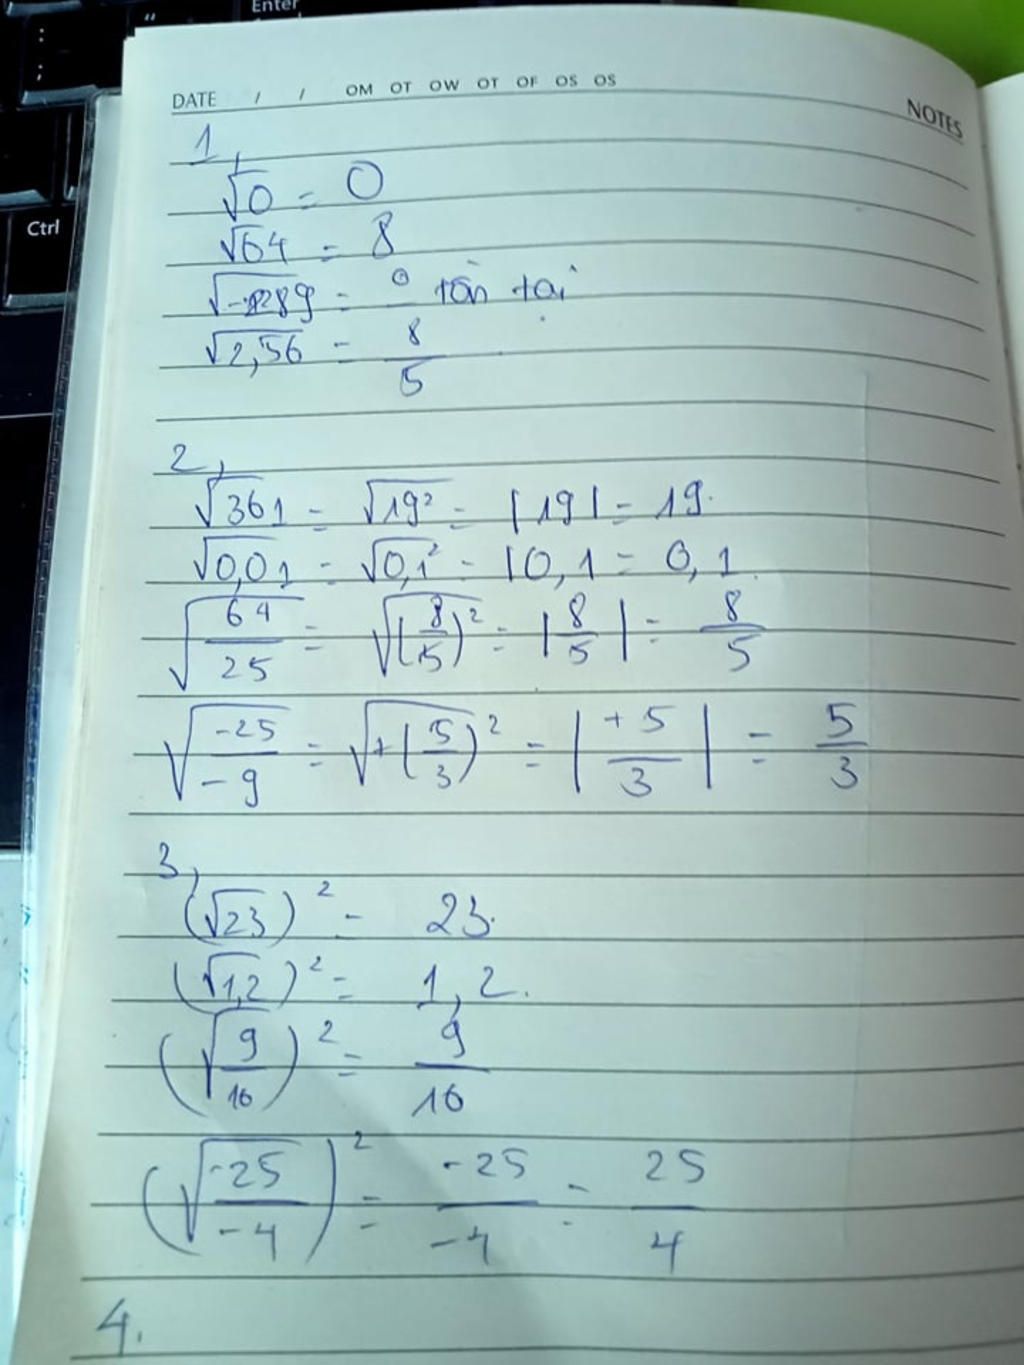 Enter
Ctrl
DATE / / OM OT OW OT OF OS OS
NOTES
1,
√0 = 0
√64 = 8
√-289 = 0 tồn tại
√2,56 = 8/5
2,
√361 = √19² = |19| = 19.
√0,01 = √0,1² = |0,1 = 0,1.
√64/25 = √(8/5)² = |8/5| = 8/5
√-25/-9 = √+(5/3)² = |+5/3| = 5/3
3,
(√23)² = 23.
(√1,2)² = 1,2.
(√9/16)² = 9/16
(√-25/-4)² = -25/-4 = 25/4
4.